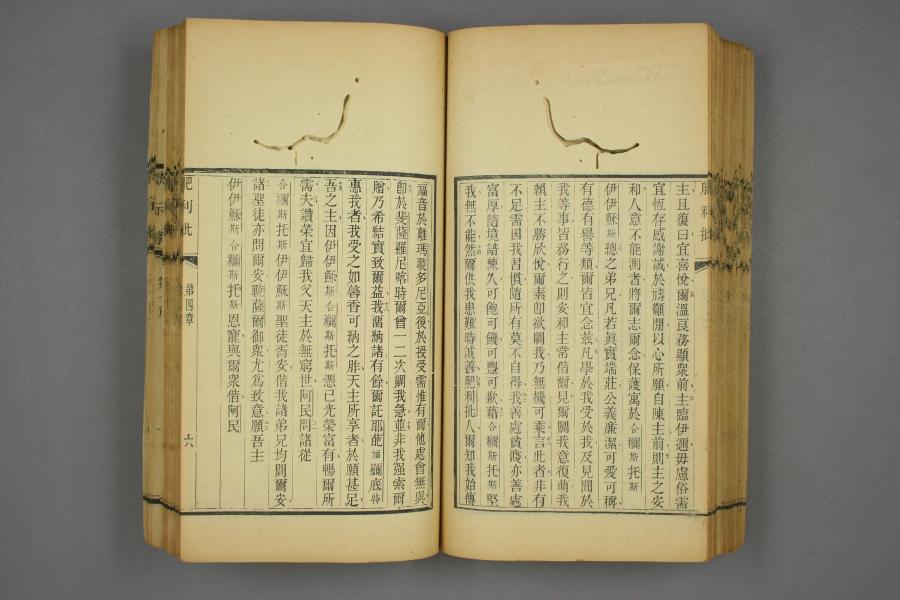 主且復曰宜善悅爾溫良務顯衆前主臨伊邇毋慮俗需
宜恆存感謝誠於禱籲開以心所願自陳主前則主之安
和人意不能測者將爾志爾念保護寓於合爾斯托斯
伊伊穌斯總之弟兄凡若眞實端莊公義廉潔可愛可稱
有德有譽等類爾皆宜念茲凡學於我受於我及見聞於
我等事皆務行之則安和主常偕爾見爾關我意復萌我
賴主不勝欣悅爾素卽欲關我乃無機可乘言此者非有
不足需因我習慣隨所有莫不自得我善處貧賤亦善處
富厚隨境諳練久可飽可饑可豐可歉藉合爾斯托斯堅
我無不能然爾供我患難時誠善肥利批人爾知我始傳
肥利批
福音於離瑪聯多尼亞後於授受需惟有爾他處會無與
卽於斐薩羅尼喀時爾曾一二次關我急並非我强索爾
贈乃希結實致爾益我罶納諸有餘爾託耶葩福爾底特
惠我者我受之如馨香可納之胙天主所享者於願甚足
吾之主因伊伊穌斯合爾斯托斯憑已光榮富有暢爾所
需夫讚榮宜歸我父天主於無窮世阿民問諸從
合爾斯托斯伊伊穌斯聖徒者安偕我諸弟兄均問爾安
諸聖徒亦問爾安凱薩爾御衆尤爲致意願吾主
伊伊穌斯合爾斯托斯恩寵與爾衆偕阿民
肥利批
第四章
六